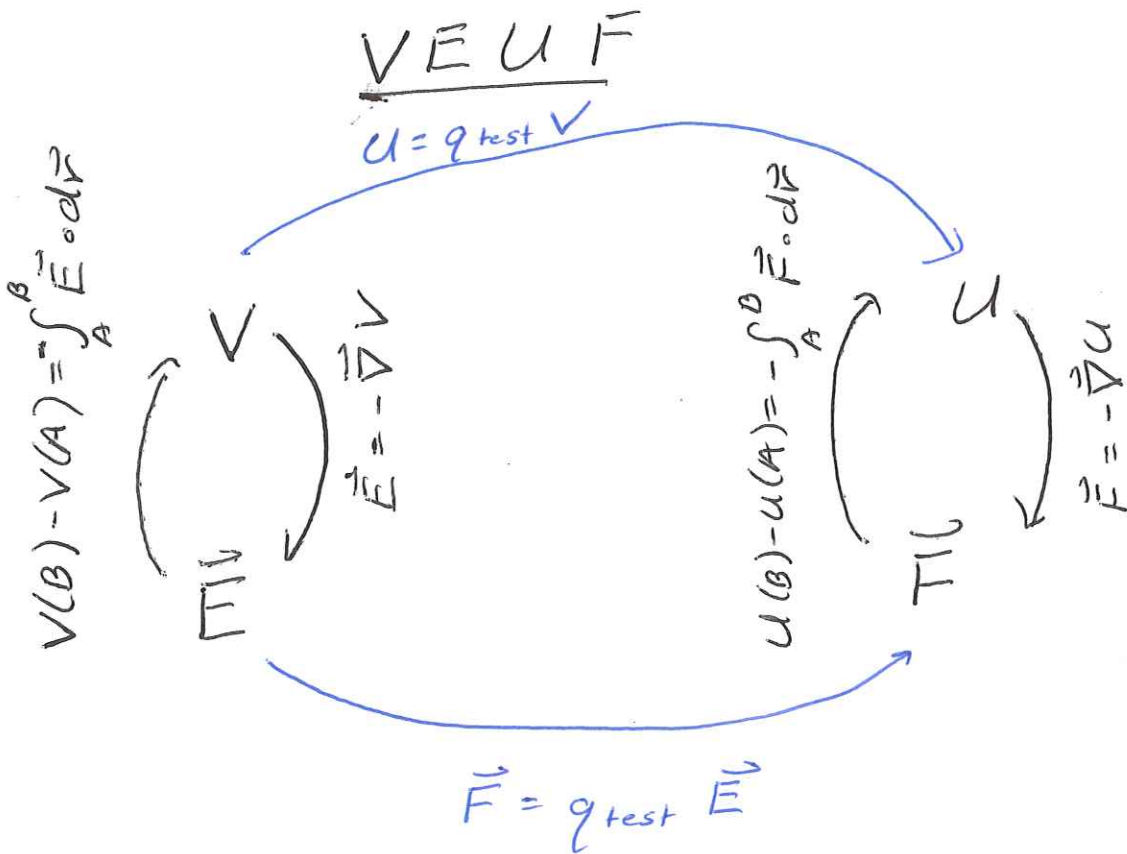 V E U F
U = q test V
V(B) - V(A) = -∫_A^B E⃗ · dr⃗
V
E⃗ = -∇⃗V
E⃗
U(B) - U(A) = -∫_A^B F⃗ · dr⃗
U
F⃗ = -∇⃗U
F⃗
F⃗ = q test E⃗